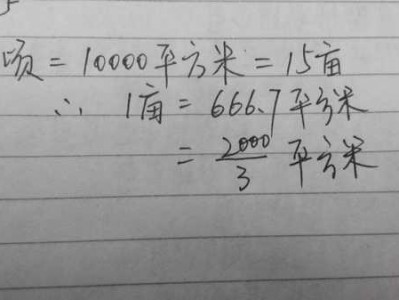 顷 = 10000平方米 = 15亩
∴ 1亩 = 666.7平方米
= 2000/3 平方米